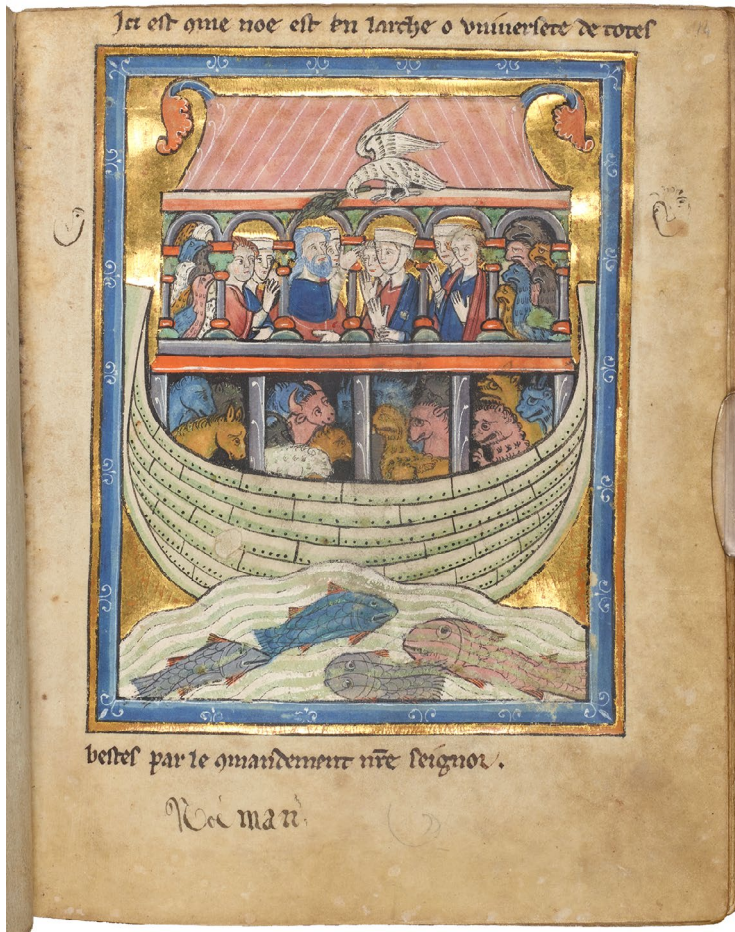 Ici est qme noe est en larche o vniuersete de totes
bestes par le qmandement nr̄e seignor.